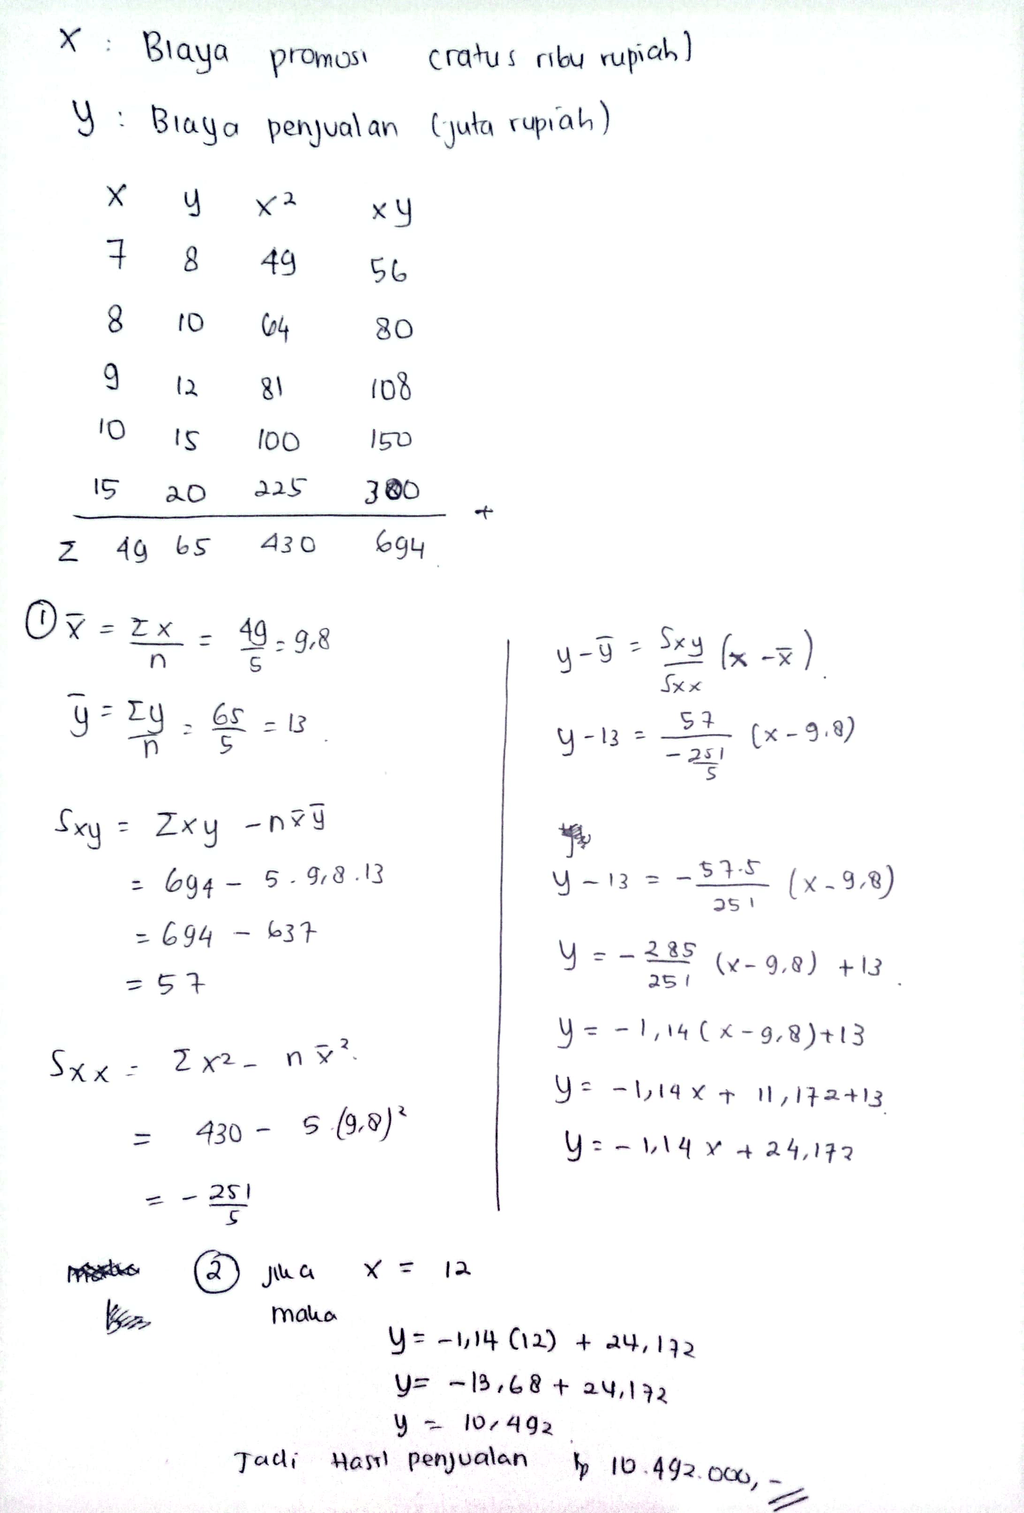 x : Biaya promosi (ratus ribu rupiah)
y : Biaya penjualan (juta rupiah)
x y x² xy
7 8 49 56
8 10 64 80
9 12 81 108
10 15 100 150
15 20 225 300 +
Σ 49 65 430 694
① x̄ = Σx/n = 49/5 = 9,8
ȳ = Σy/n = 65/5 = 13
Sxy = Σxy - n x̄ ȳ
= 694 - 5 . 9,8 . 13
= 694 - 637
= 57
Sxx = Σx² - n x̄².
= 430 - 5 . (9,8)²
= - 251/5
y - ȳ = Sxy/Sxx (x - x̄).
y - 13 = 57/(- 251/5) (x - 9,8)
y - 13 = - 57.5/251 (x - 9,8)
y = - 285/251 (x - 9,8) + 13.
y = - 1,14 (x - 9,8) + 13
y = - 1,14 x + 11,172 + 13
y = - 1,14 x + 24,172
② Jika x = 12
maka
y = -1,14 (12) + 24,172
y = -13,68 + 24,172
y = 10,492
Jadi Hasil penjualan Rp 10.492.000,-